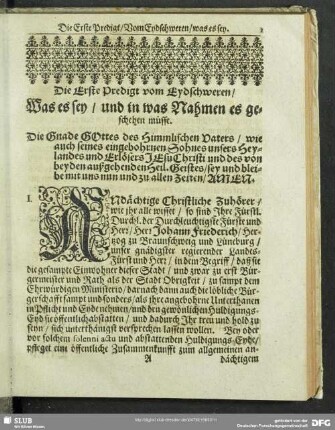 Die Erste Predigt/ Vom Eydschweren/ was es sey.
Die Erste Predigt vom Eydschweren/
Was es sey / und in was Nahmen es ge-
schehen müsse.
Die Gnade GOttes des Himmlischen Vaters / wie
auch seines eingebohrnen Sohnes unsers Hey-
landes und Erlösers JEsu Christi und des von
beyden außgehenden Heil. Geistes/ sey und blei-
be mit uns nun und zu allen Zeiten/ AMEN.
I.
ANdächtige Christliche Zuhörer /
wie ihr alle wisset / so sind Ihre Fürstl.
Durchl. der Durchleuchtigste Fürst und
Herr/ Herr Johann Friederich/ Her-
zog zu Braunschweig und Lüneburg /
unser gnädigster regierender Landes-
Fürst und Herr / in dem Begriff / daß sie
die gesampte Einwohner dieser Stadt / und zwar zu erst Bür-
germeister und Rath als der Stadt Obrigkeit / zu sampt dem
Ehrwürdigen Ministerio, darnach dann auch die löbliche Bür-
gerschafft sampt und sonders/ als ihre angebohrne Unterthanen
in Pflicht und Eyde nehmen/ und den gewönlichen Huldigungs-
Eyd sie öffentlich abstatten / und dadurch Ihr treu und hold zu
seyn / sich unterthänigst versprechen lassen wollen. Bey oder
vor solchem solenni actu und abstattenden Huldigungs-Eyde/
pfleget eine öffentliche Zusammenkunfft zum allgemeinen an-
A
dächtigem
SLUB
Wir führen Wissen.
gefördert von der
Deutschen Forschungsgemeinschaft
DFG